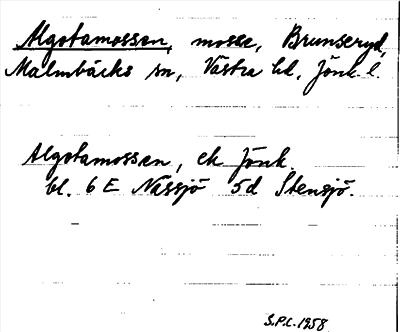 Algotamossen, mosse, Brunseryd,
Malmbäcks sn, Västra hd, Jönk. l.
Algotamossen, ek Jönk.
bl. 6 E Nässjö 5d Stensjö.
S.P.L. 1958